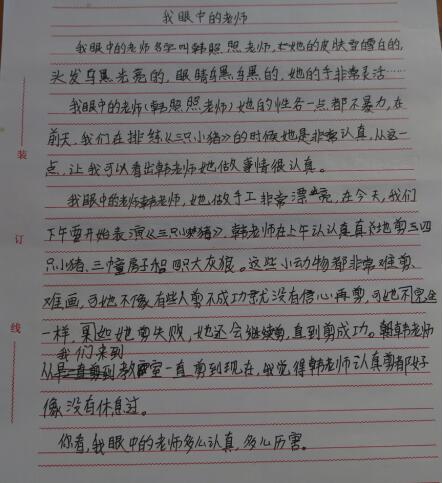 我眼中的老师
我眼中的老师名字叫韩照照老师,她的皮肤雪雪白的,
头发乌黑光亮的,眼睛乌黑乌黑的,她的手非常灵活……
我眼中的老师(韩照照老师)她的性各一点都不暴力,在
前天,我们在排练《三只小猪》的时候她是非常认真,从这一
点,让我可以看出韩老师她做事情很认真。
我眼中的老师韩老师,她做手工非常漂亮,在今天,我们
下午要开始表演《三只小猪》,韩老师在上午认认真真地剪三四
只小猪、三幢房子和四只大灰狼。这些小动物都非常难剪、
难画,可她不像有些人剪不成功就没有信心再剪,可她不完全
一样,果如她剪失败,她还会继续剪,直到剪成功。韩老师
我们来到
从教室一直剪到现在,我觉得韩老师认真剪都好
像没有休息过。
你看,我眼中的老师多么认真,多么厉害。
装
订
线